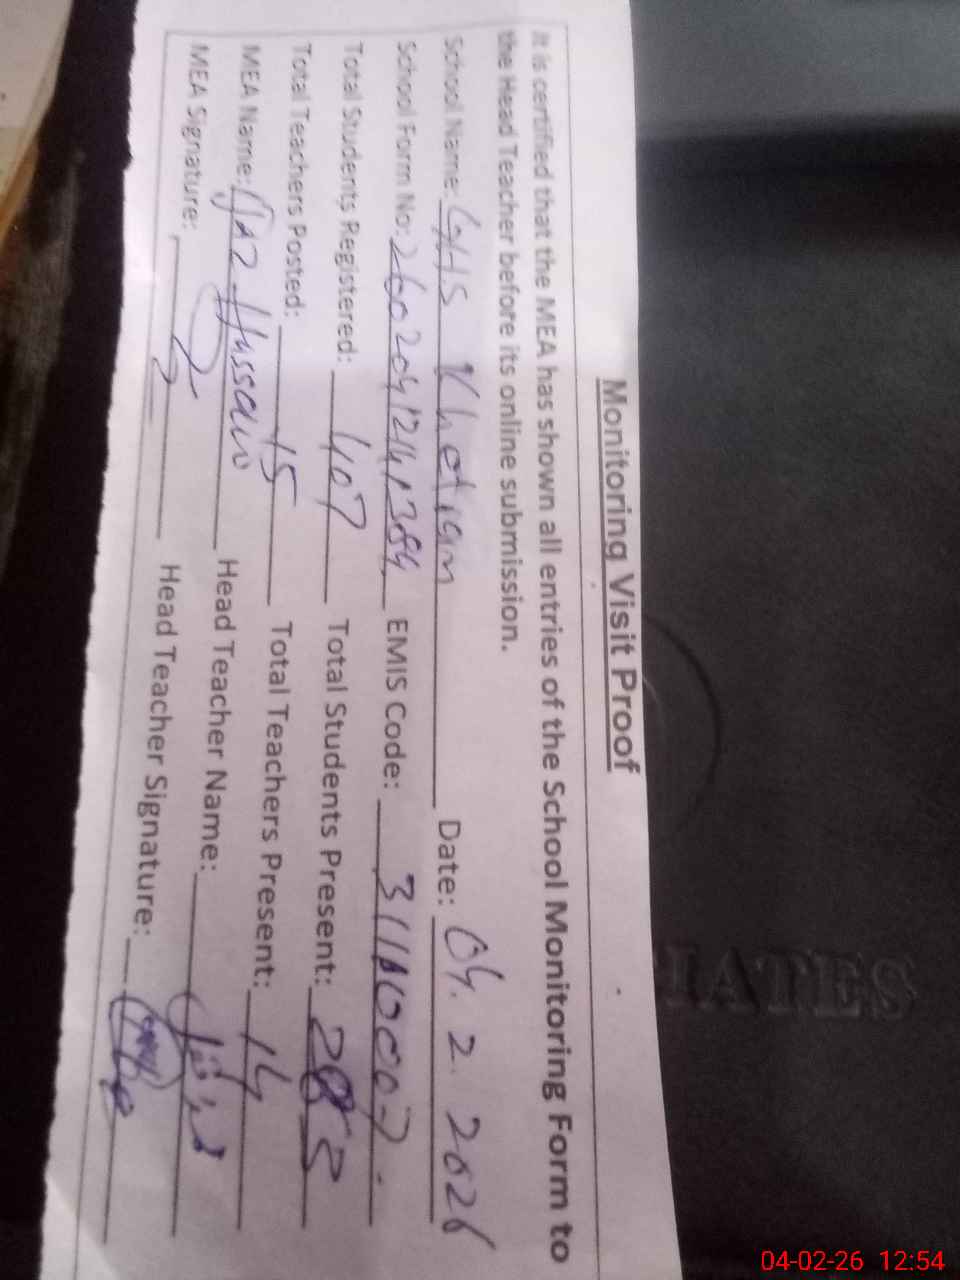 Monitoring Visit Proof
It is certified that the MEA has shown all entries of the School Monitoring Form to
the Head Teacher before its online submission.
School Name: GHS Khetran Date: 04.2.2026
School Form No: EMIS Code:
Total Students Registered: 407 Total Students Present:
Total Teachers Posted: 15 Total Teachers Present: 14
MEA Name: Hussain Head Teacher Name:
MEA Signature: Head Teacher Signature:
IATES
04-02-26 12:54